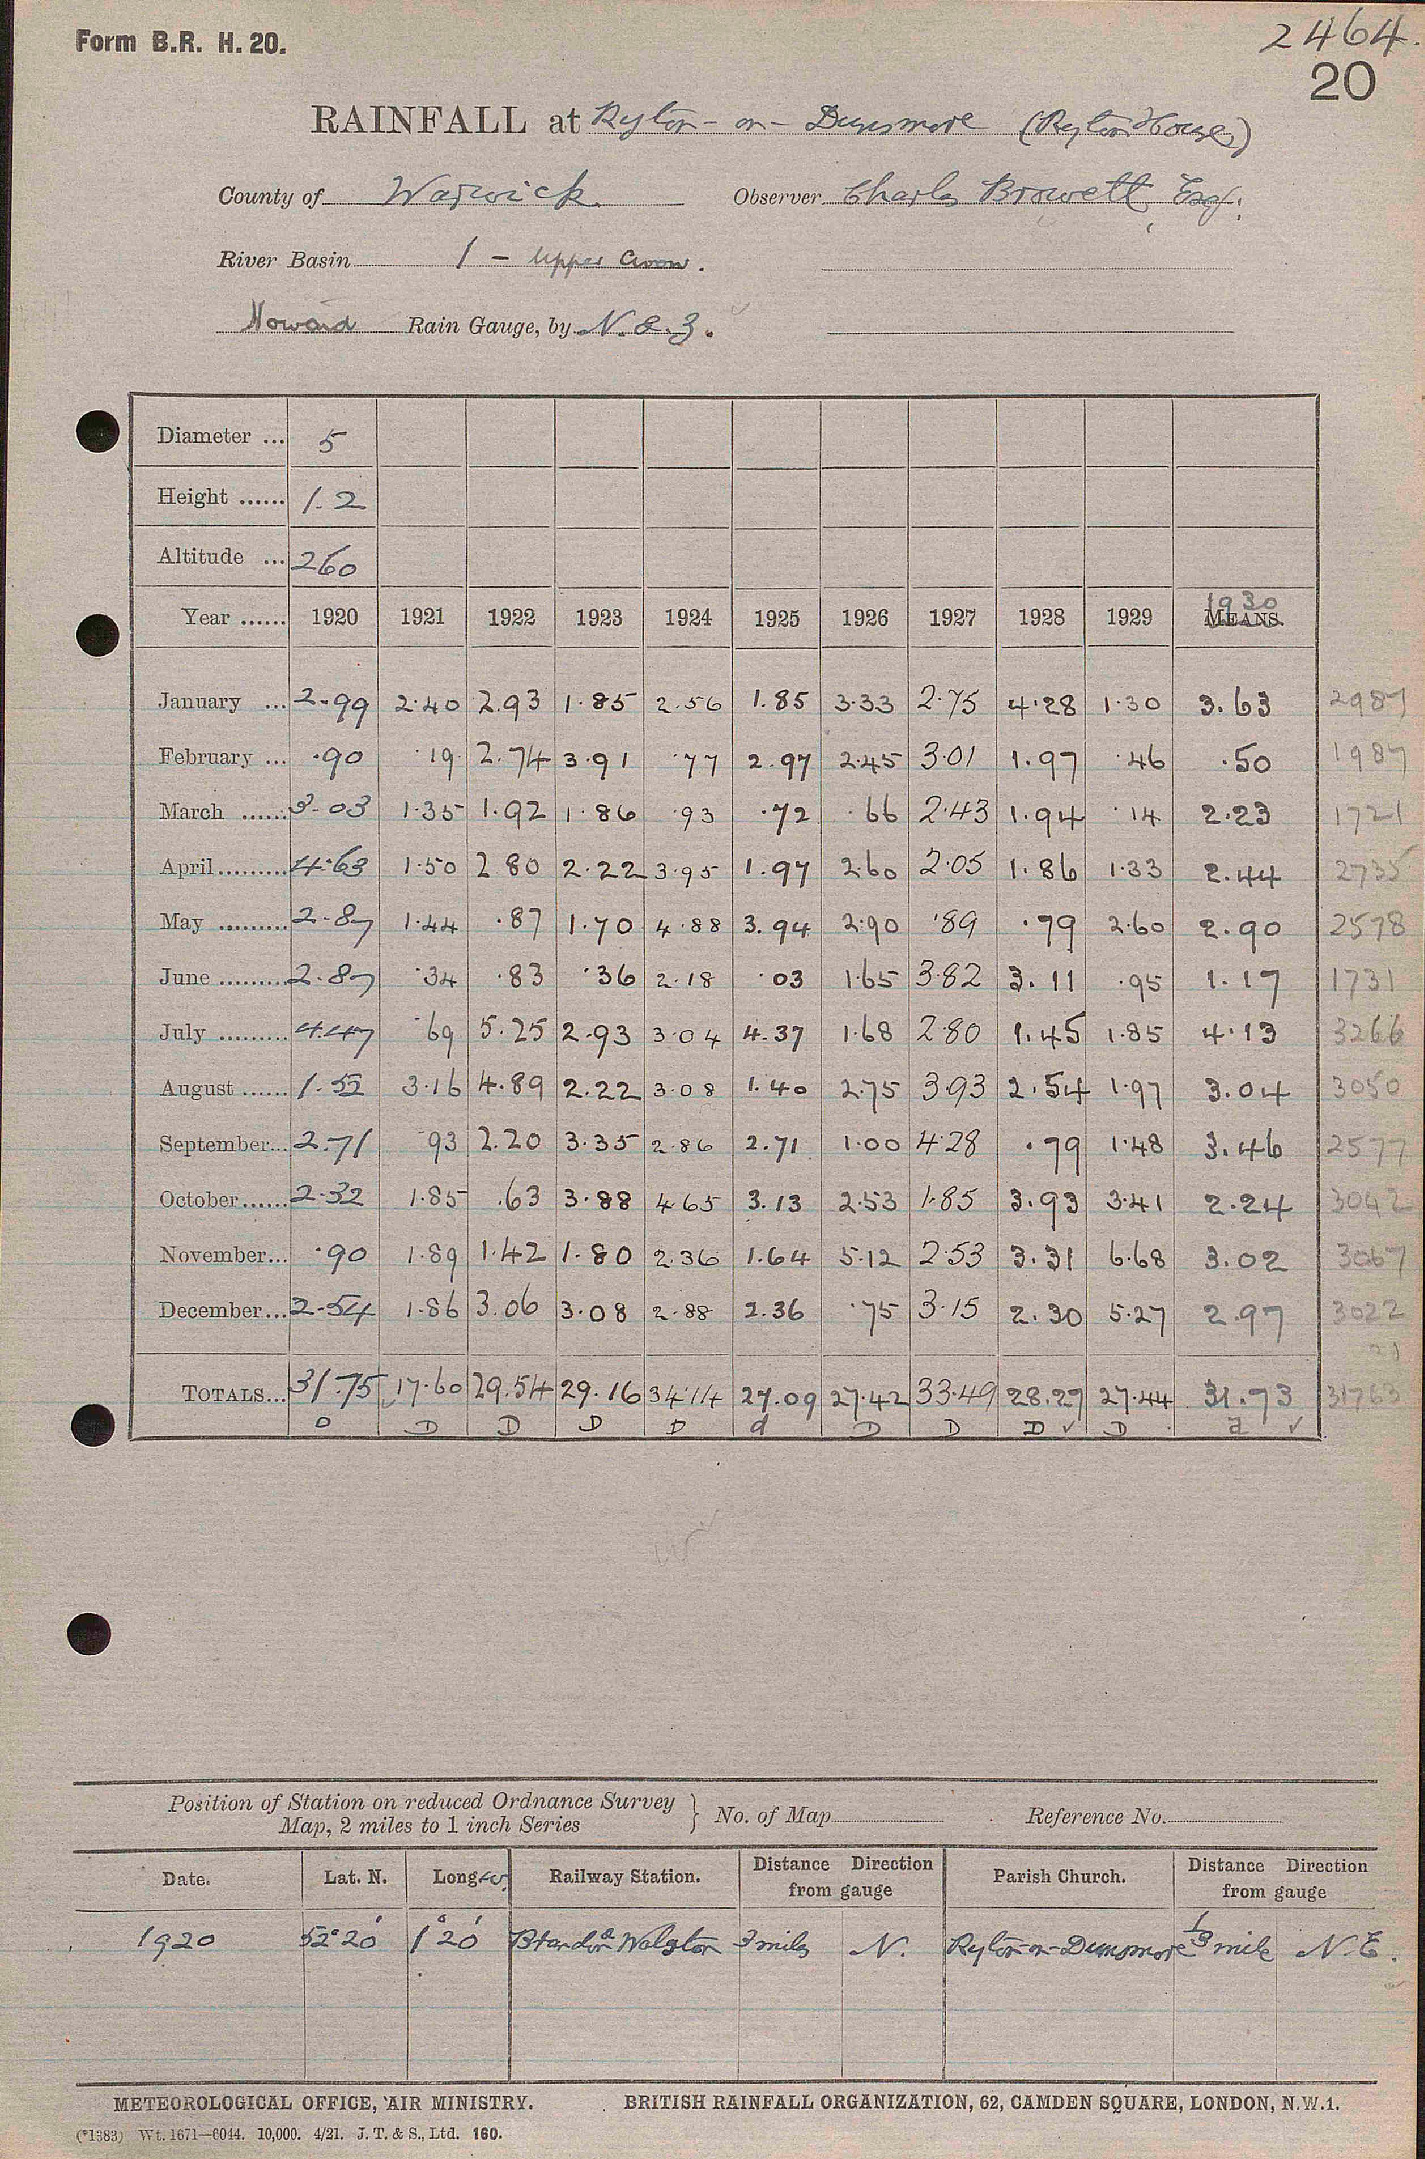 Form B.R. H. 20.
2464.
20
RAINFALL at Ryton-on-Dunsmore (Ryton House)
County of Warwick Observer Charles Browett, Esq.
River Basin 1 - Upper Avon.
Howard Rain Gauge, by N. & Z.
Diameter ... 5
Height ...... 1.2
Altitude ... 260
1930
Year ...... 1920 1921 1922 1923 1924 1925 1926 1927 1928 1929 MEANS.
January ... 2.99 2.40 2.93 1.85 2.56 1.85 3.33 2.75 4.28 1.30 3.63 2987
February ... .90 .19 2.74 3.91 .77 2.97 2.45 3.01 1.97 .46 .50 1987
March ...... 3.03 1.35 1.92 1.86 .93 .72 .66 2.43 1.94 .14 2.23 1721
April......... 4.63 1.50 2.80 2.22 3.95 1.97 2.60 2.05 1.86 1.33 2.44 2735
May ......... 2.87 1.44 .87 1.70 4.88 3.94 2.90 .89 .79 2.60 2.90 2578
June ......... 2.87 .34 .83 .36 2.18 .03 1.65 3.82 3.11 .95 1.17 1731
July ......... 4.47 .69 5.25 2.93 3.04 4.37 1.68 2.80 1.45 1.85 4.13 3266
August ...... 1.52 3.16 4.89 2.22 3.08 1.40 2.75 3.93 2.54 1.97 3.04 3050
September... 2.71 .93 2.20 3.35 2.86 2.71 1.00 4.28 .79 1.48 3.46 2577
October...... 2.32 1.85 .63 3.88 4.65 3.13 2.53 1.85 3.93 3.41 2.24 3042
November... .90 1.89 1.42 1.80 2.36 1.64 5.12 2.53 3.31 6.68 3.02 3067
December... 2.54 1.86 3.06 3.08 2.88 2.36 .75 3.15 2.30 5.27 2.97 3022
TOTALS... 31.75 17.60 29.54 29.16 34.14 27.09 27.42 33.49 28.27 27.44 31.73 31763
D D D D d D D D ✓ D d ✓
Position of Station on reduced Ordnance Survey Map, 2 miles to 1 inch Series } No. of Map Reference No.
Date. Lat. N. Long. W. Railway Station. Distance Direction from gauge Parish Church. Distance Direction from gauge
1920 52°20' 1°20' Brandon & Wolston 3 miles N. Ryton-on-Dunsmore 1/3 mile N.E.
METEOROLOGICAL OFFICE, AIR MINISTRY. BRITISH RAINFALL ORGANIZATION, 62, CAMDEN SQUARE, LONDON, N.W.1.
(*1383) Wt. 1671—6044. 10,000. 4/21. J. T. & S., Ltd. 160.